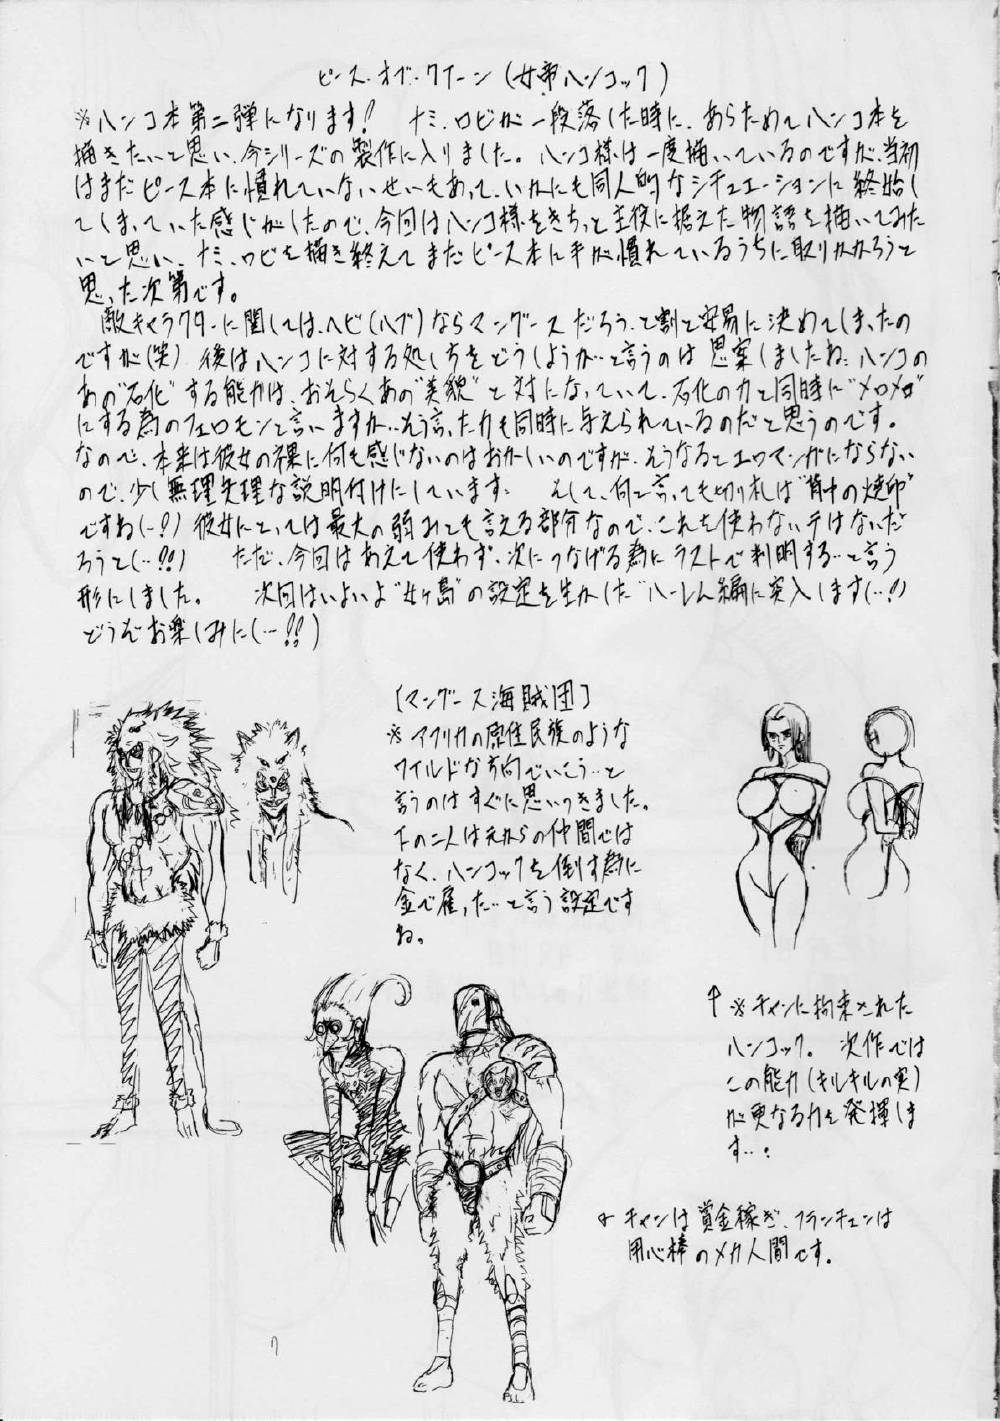 ピース・オブ・クイーン(女帝ハンコック)
※ハンコ本第二弾になります! ナミ、ロビが一段落した時に、あらためてハンコ本を
描きたいと思い、今シリーズの製作に入りました。ハンコ様は一度描いているのですが、当初
はまだピース本に慣れていないせいもあって、いかにも同人的なシチュエーションに終始し
てしまっていた感じがしたので、今回はハンコ様をきちっと主役に据えた物語を描いてみた
いと思い、ナミ、ロビを描き終えてまだピース本に手が慣れているうちに取りかかろうと
思った次第です。
敵キャラクターに関しては、ヘビ(ハブ)ならマングースだろう、と割と安易に決めてしまったの
ですが(笑) 後はハンコに対する処しちをどうしようか…と言うのは思案しましたね。ハンコの
あの“石化”する能力は、おそらくあの“美貌”と対になっていて、石化の力と同時に“メロメロ”
にする為のフェロモンと言いますか…そう言った力も同時に与えられているのだと思うのです。
なので、本来は彼女の裸に何も感じないのはおかしいのですが、そうなるとエロマンガにならない
ので、少し無理矢理な説明付けにしています。 そして、何と言っても切り札は“背中の焼印”
ですね(…!) 彼女にとっては最大の弱みとも言える部分なので、これを使わないテはないだ
ろうと(…!!) ただ、今回はあえて使わず、次につなげる為にラストで判明する…と言う
形にしました。 次回はいよいよ“女ヶ島”の設定を生かした“ハーレム編に突入します(…!)
どうぞお楽しみに(…!!)
[マングース海賊団]
※アフリカの原住民族のような
ワイルドな方向でいこう…と
言うのはすぐに思いつきました。
下の二人は元からの仲間では
なく、ハンコックを倒す為に
金で雇った…と言う設定です
ね。
↑※チャンに拘束された
ハンコック。 次作では
この能力(キルキルの実)
が更なる力を発揮しま
す…!
チャンは賞金稼ぎ、フランチェンは
用心棒のメカ人間です。